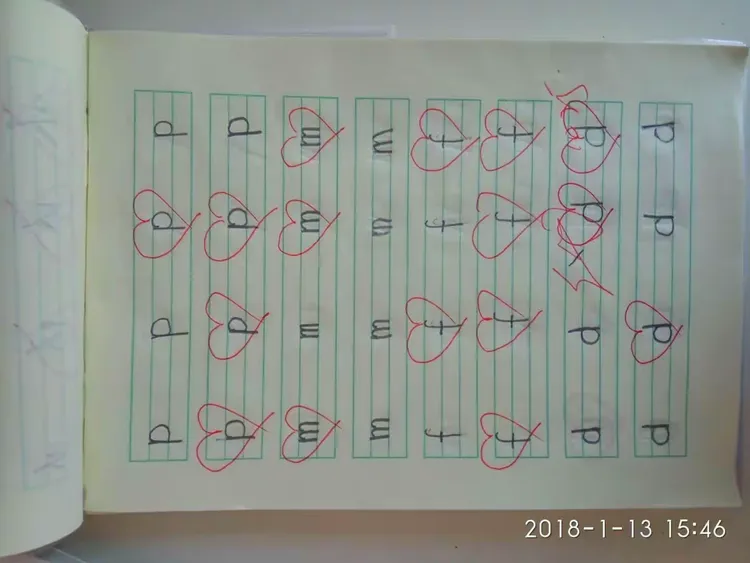 p p p p
p p p p
m m m m
m m m m
f f f f
f f f f
d d d d
d d d d
2018-1-13 15:46